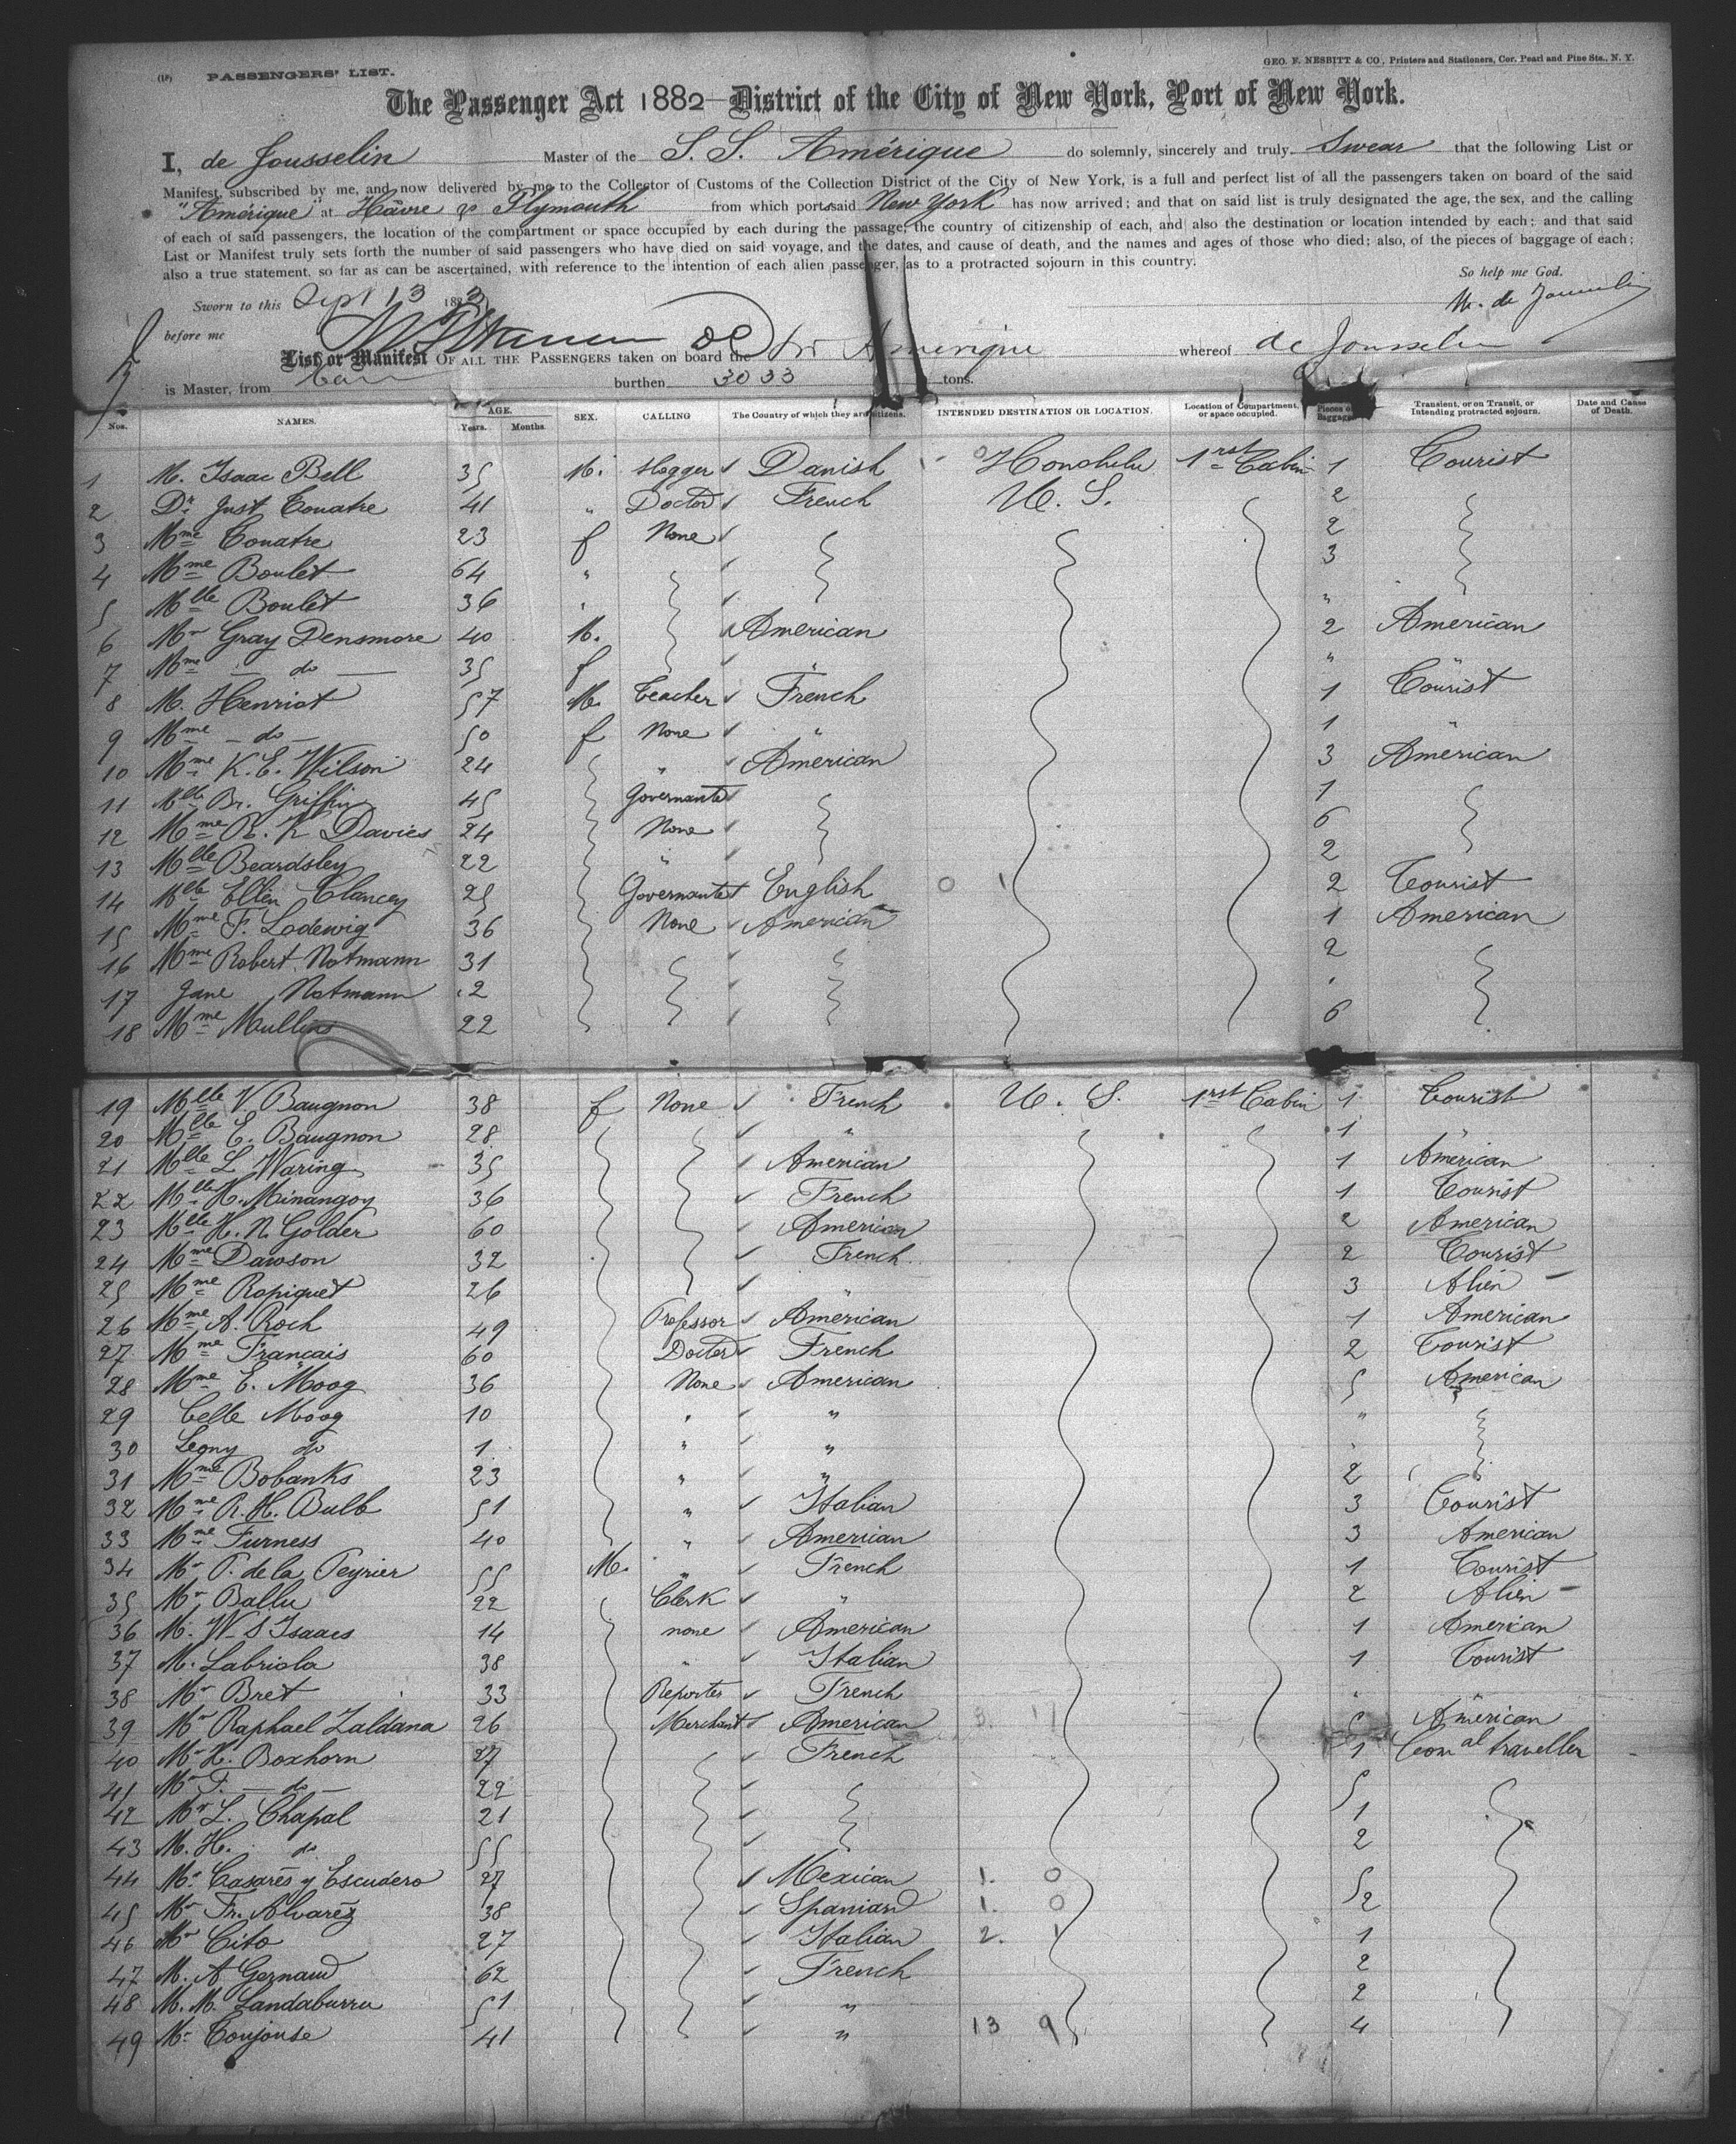 (18) PASSENGERS' LIST.
GEO. F. NESBITT & CO., Printers and Stationers, Cor. Pearl and Pine Sts., N. Y.
The Passenger Act 1882—District of the City of New York, Port of New York.
I, de Jousselin Master of the S. S. Amérique do solemnly, sincerely and truly Swear that the following List or
Manifest, subscribed by me, and now delivered by me to the Collector of Customs of the Collection District of the City of New York, is a full and perfect list of all the passengers taken on board of the said
"Amérique" at Hâvre & Plymouth from which port said New York has now arrived; and that on said list is truly designated the age, the sex, and the calling
of each of said passengers, the location of the compartment or space occupied by each during the passage, the country of citizenship of each, and also the destination or location intended by each; and that said
List or Manifest truly sets forth the number of said passengers who have died on said voyage, and the dates, and cause of death, and the names and ages of those who died; also, of the pieces of baggage of each;
also a true statement, so far as can be ascertained, with reference to the intention of each alien passenger, as to a protracted sojourn in this country.
So help me God.
Sworn to this Sept 13 1883
before me
List or Manifest OF ALL THE PASSENGERS taken on board the Amérique whereof de Jousselin
is Master, from burthen 3033 tons.
Nos. NAMES. AGE. Years. Months. SEX. CALLING The Country of which they are citizens. INTENDED DESTINATION OR LOCATION. Location of Compartment, or space occupied. Pieces of Baggage. Transient, or on Transit, or Intending protracted sojourn. Date and Cause of Death.
1 M. Isaac Bell 35 M. Danish Honolulu 1rst Cabin 1 Tourist
2 Dr Just Touatre 41 " Doctor French U. S. 2
3 Mme Touatre 23 f None 2
4 Mme Boulet 64 " 3
5 Mlle Boulet 36 " "
6 Mr Gray Densmore 40 M. American 2 American
7 Mme — do — 35 f " " "
8 M. Henriot 57 M. Teacher French 1 Tourist
9 Mme — do — 50 f None " 1 "
10 Mme K. E. Wilson 24 " American 3 American
11 Mlle Br. Griffin 45 Governante 1
12 Mme R. K Davies 24 None 6
13 Mlle Beardsley 22 " 2
14 Mlle Ellen Clancey 25 Governante English 0 1 2 Tourist
15 Mme F. Lodewig 36 None American 1 American
16 Mme Robert Notmann 31 2
17 Jane Notmann 2 "
18 Mme Mullins 22 6
19 Mlle V. Baugnon 38 f None French U. S. 1rst Cabin 1 Tourist
20 Mlle E. Baugnon 28 " 1 "
21 Mlle L. Waring 35 American 1 American
22 Mlle H. Minangoy 36 French 1 Tourist
23 Mlle H. N. Golder 60 American 2 American
24 Mme Dawson 32 French 2 Tourist
25 Mme Ropiquet 26 " 3 Alien —
26 Mme A. Roch 49 Professor American 1 American
27 Mme Francais 60 Doctor French 2 Tourist
28 Mme E. Moog 36 None American 5 American
29 Celle Moog 10 " " "
30 Leony do 1 " " "
31 Mme Bobanks 23 " " 2
32 Mme R. H. Bulb 51 " Italian 3 Tourist
33 Mme Furness 40 " American 3 American
34 Mr P. de la Peyrier 55 M. " French 1 Tourist
35 Mr Ballu 22 Clerk " 2 Alien —
36 M. W. S Isaacs 14 none American 1 American
37 M. Labriola 38 " Italian 1 Tourist
38 Mr Bret 33 Reporter French " "
39 Mr Raphael Zaldana 26 Merchant American American
40 Mr H. Boxhorn 27 French 1 Comal traveller
41 Mr F. — do — 22 5
42 Mr L. Chapal 21 1
43 M. H. do 55 2
44 Mr Casarès y Escudero 27 Mexican 1. 0 5
45 Mr Fr. Alvarez 38 Spaniard 1. 0 2
46 Mr Cito 27 Italian 2. 1 1
47 M. A Gernaud 62 French 2
48 M. M. Landaburru 51 " 2
49 Mr Toujouse 41 " 13 9 4